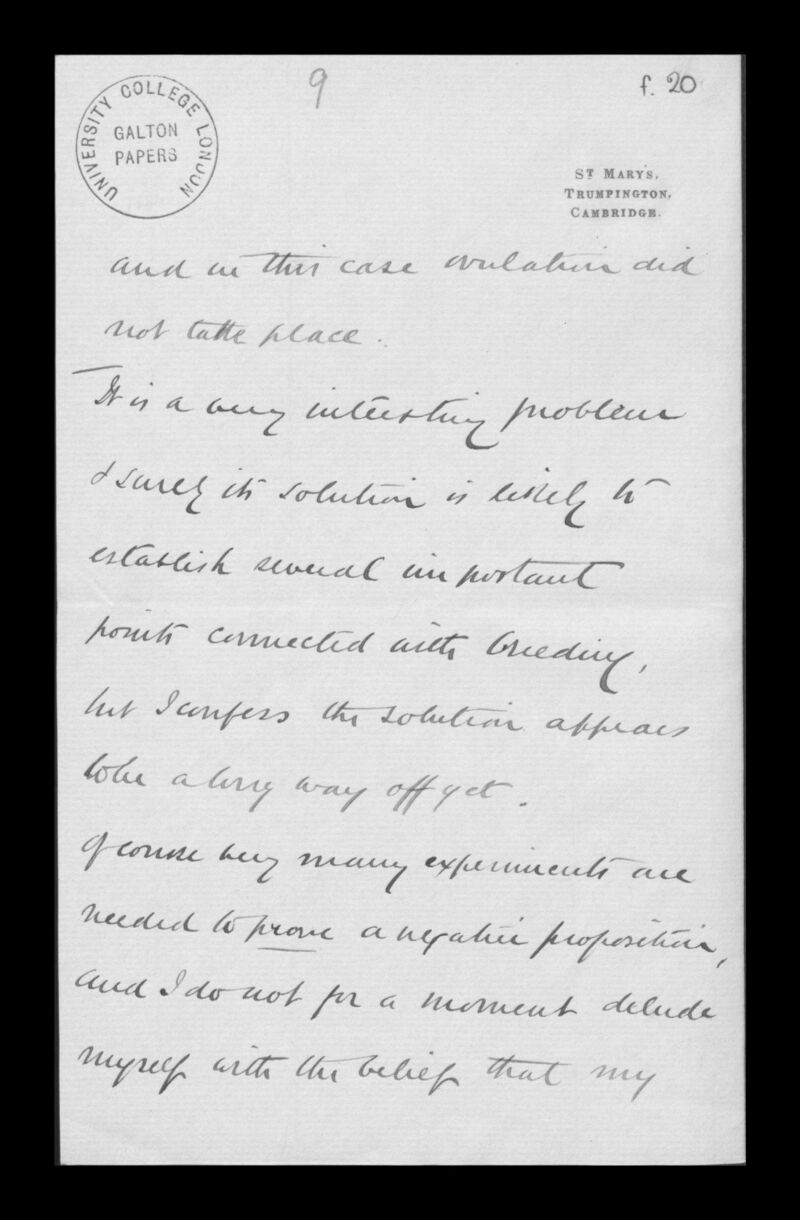 9
f. 20
UNIVERSITY COLLEGE LONDON
GALTON
PAPERS
ST MARY'S,
TRUMPINGTON,
CAMBRIDGE.
and in this case ovulation did
not take place.
It is a very interesting problem
& surely its solution is likely to
establish several important
points connected with breeding,
but I confess the solution appears
to be a long way off yet.
Of course very many experiments are
needed to prove a negative proposition,
and I do not for a moment delude
myself with the belief that my